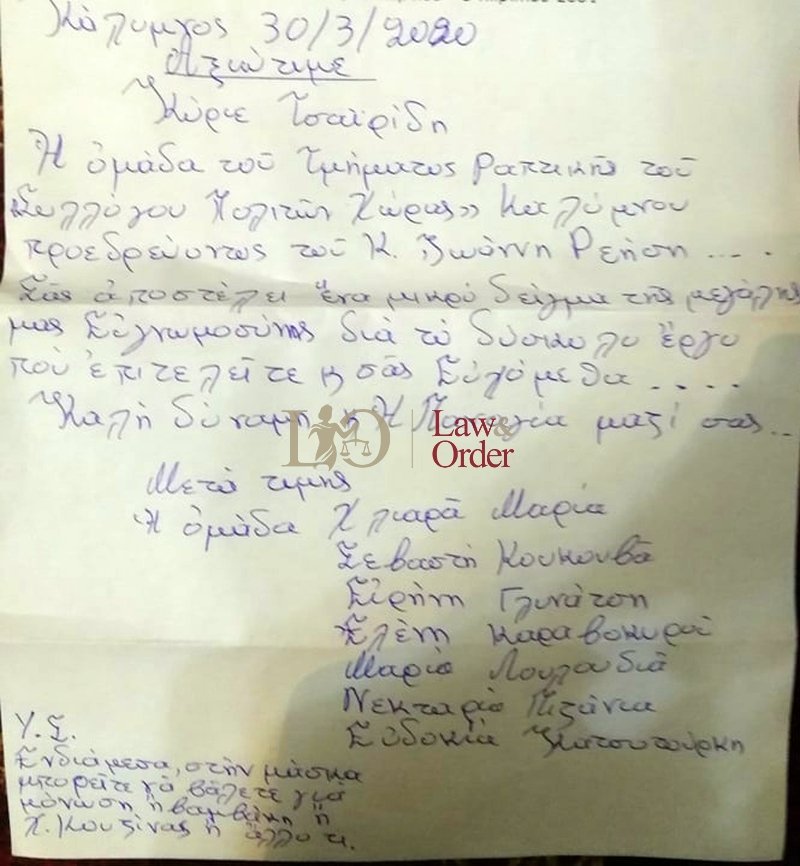 Κάλυμνος 30/3/2020
Ἀξιότιμε
Κύριε Τσαϊρίδη
Ἡ ὁμάδα τοῦ Τμήματος Ραπτικῆς τοῦ
Συλλόγου Πολιτῶν Χώρας» Καλύμνου
προεδρεύοντος τοῦ Κ. Ἰωάννη Ρεΐση ....
Σᾶς ἀποστέλει ἕνα μικρό δείγμα τῆς μεγάλης
μας Εὐγνωμοσύνης διά τό δύσκολο ἔργο
πού ἐπιτελεῖτε κ σᾶς Εὐχόμεθα .....
Καλή δύναμη κ Ἡ Παναγία μαζί σας..
Law & Order
Μετά τιμῆς
Ἡ ὁμάδα Χλιαρᾶ Μαρία
Σεβαστή Κουκουβᾶ
Εἰρήνη Γλυνάτση
Ἑλένη Καραβοκυροῦ
Μαρία Λουλουδιᾶ
Νεκταρία Πιζάνια
Εὐδοκία Κατσοτούρκη
Υ.Σ.
Ενδιάμεσα, στήν μάσκα
μπορεῖτε νά βάλετε γιά
μόνωση ἤ βαμβάκη ἤ
Χ. Κουζίνας ἤ ἄλλο τι.